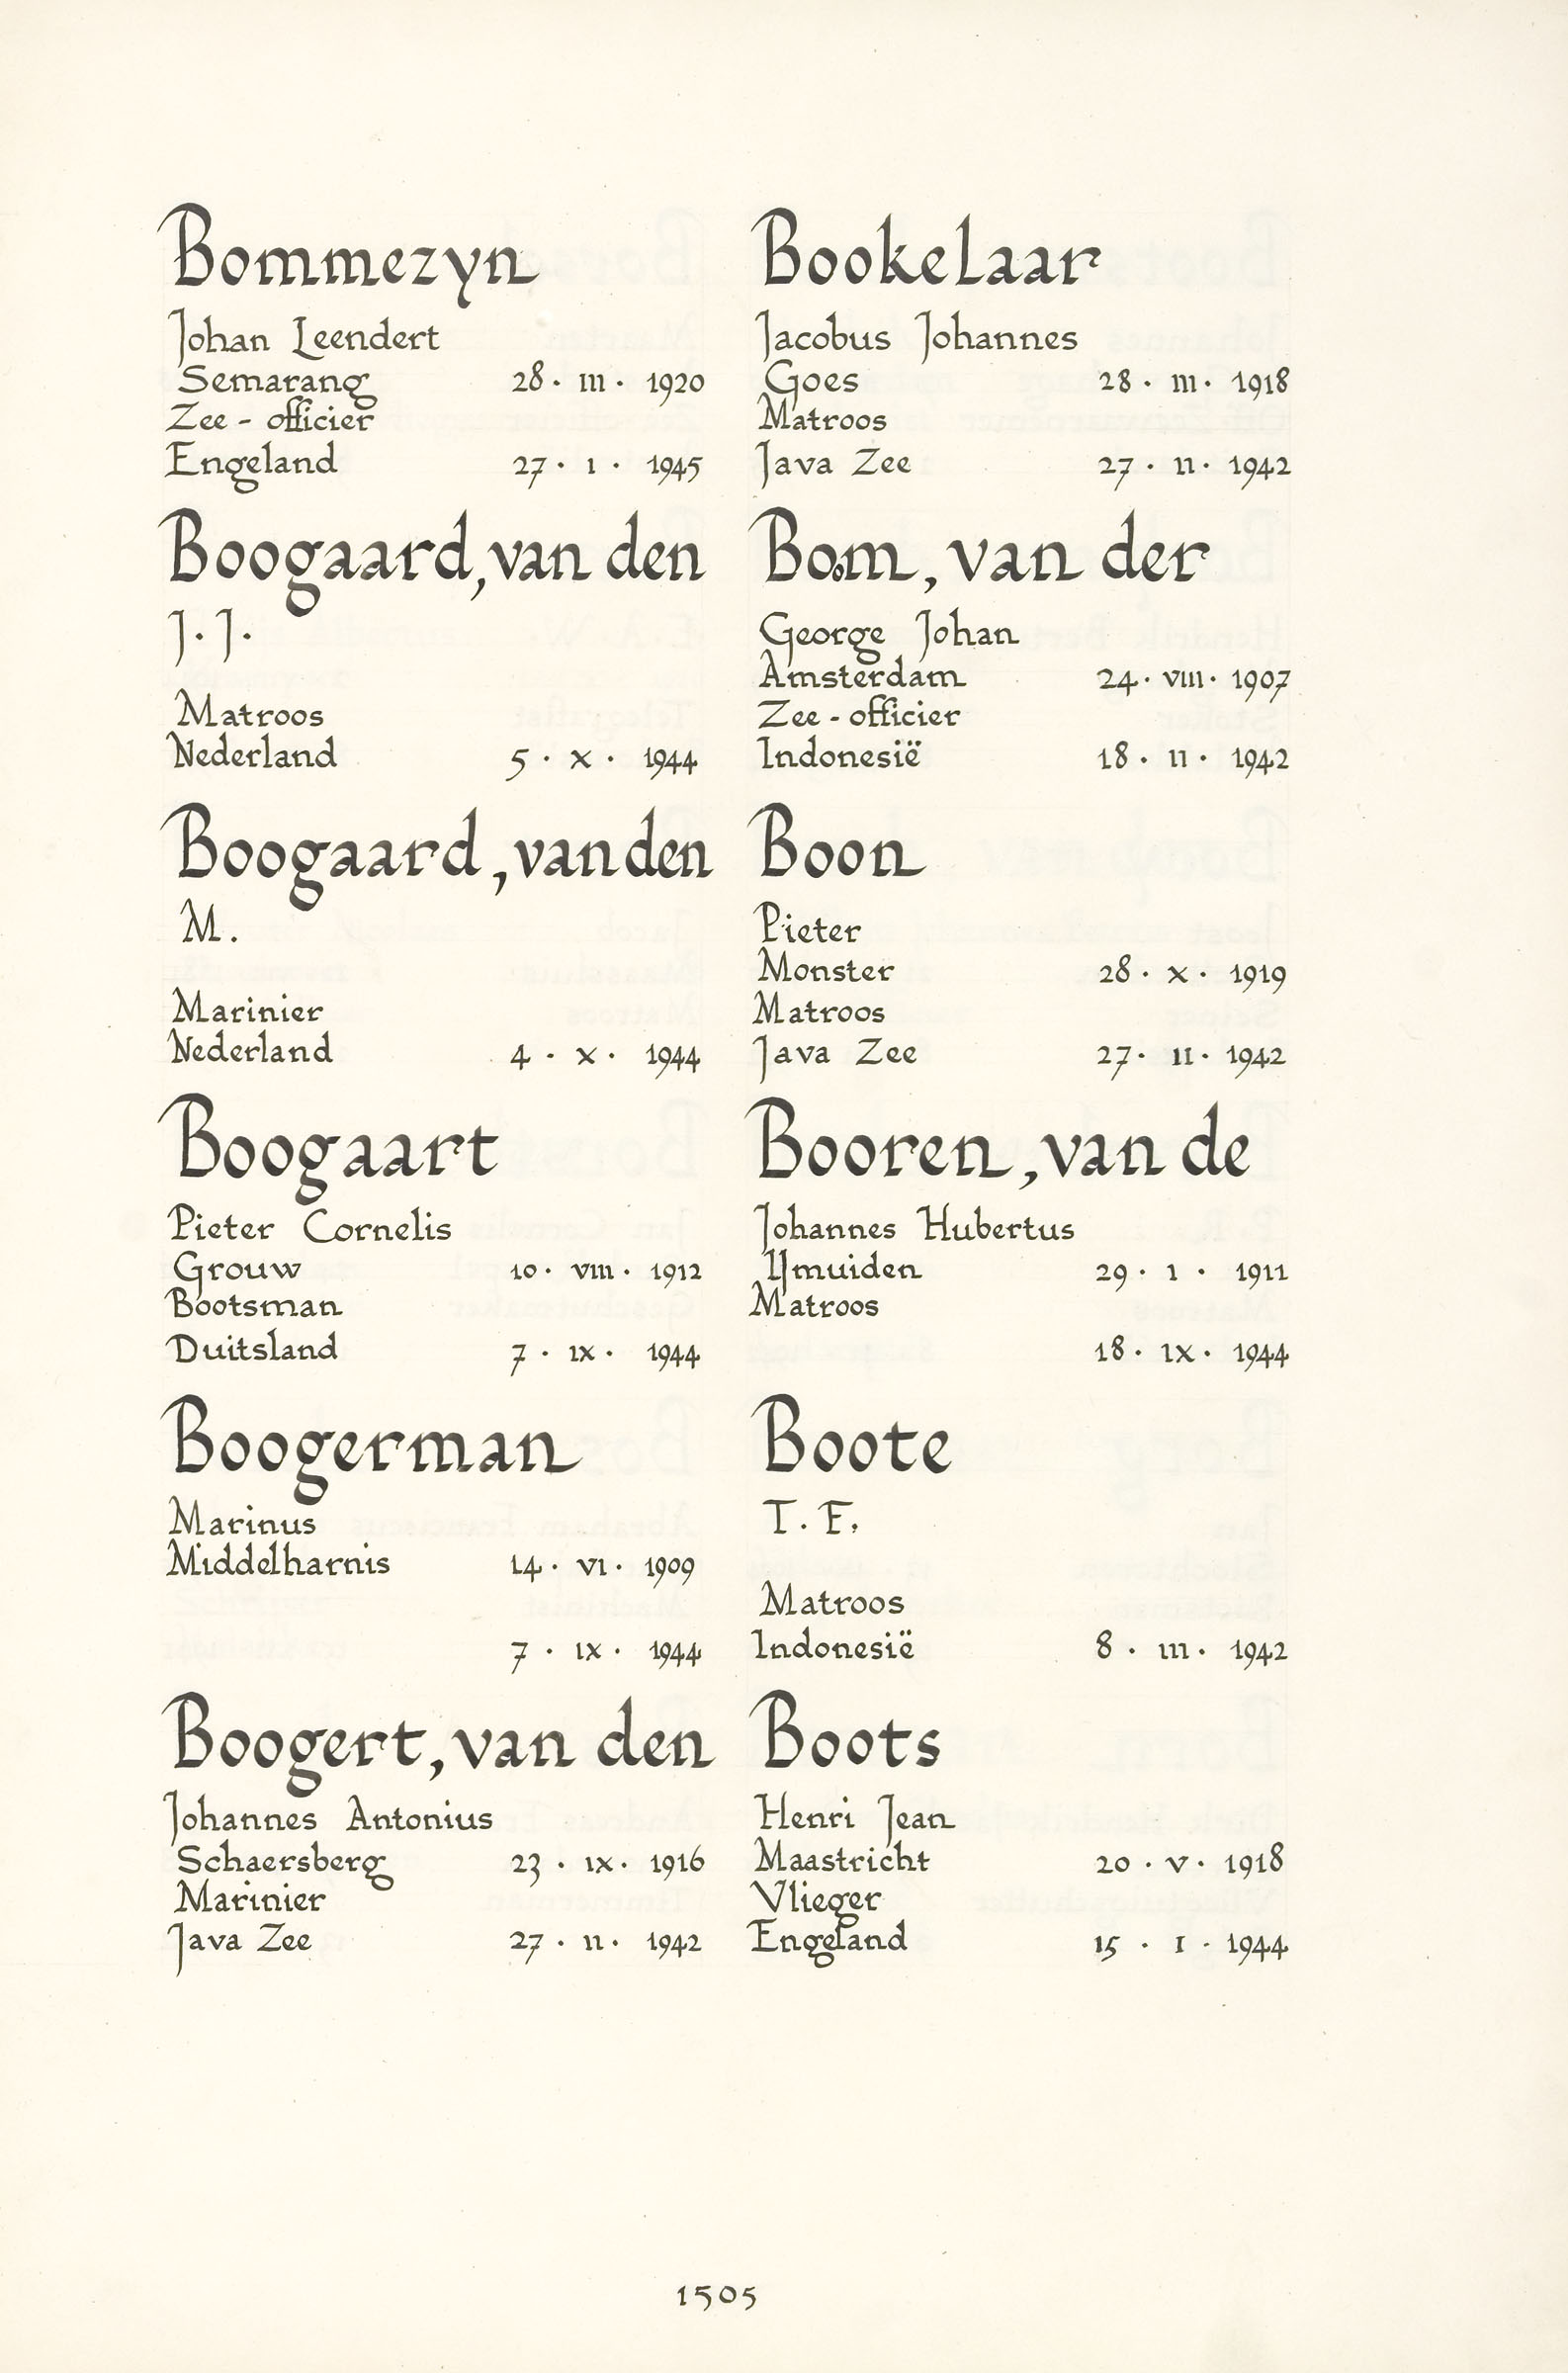 Bommezyn
Johan Leendert
Semarang 28 · III · 1920
Zee - officier
Engeland 27 · I · 1945
Boogaard, van den
J. J.
Matroos
Nederland 5 · X · 1944
Boogaard, van den
M.
Marinier
Nederland 4 · X · 1944
Boogaart
Pieter Cornelis
Grouw 10 · VIII · 1912
Bootsman
Duitsland 7 · IX · 1944
Boogerman
Marinus
Middelharnis 14 · VI · 1909
7 · IX · 1944
Boogert, van den
Johannes Antonius
Schaersberg 23 · IX · 1916
Marinier
Java Zee 27 · II · 1942
Bookelaar
Jacobus Johannes
Goes 28 · III · 1918
Matroos
Java Zee 27 · II · 1942
Boom, van der
George Johan
Amsterdam 24 · VIII · 1907
Zee - officier
Indonesië 18 · II · 1942
Boon
Pieter
Monster 28 · X · 1919
Matroos
Java Zee 27 · II · 1942
Booren, van de
Johannes Hubertus
IJmuiden 29 · I · 1911
Matroos
18 · IX · 1944
Boote
T. F.
Matroos
Indonesië 8 · III · 1942
Boots
Henri Jean
Maastricht 20 · V · 1918
Vlieger
Engeland 15 · I · 1944
1505